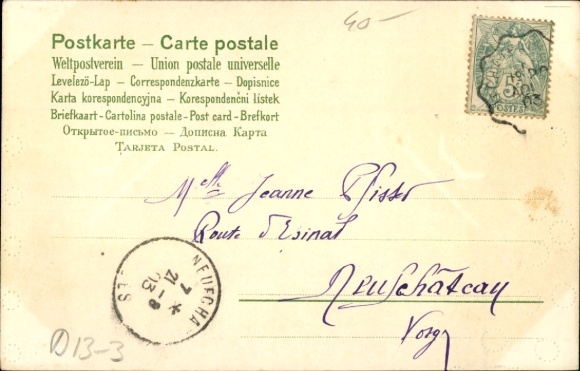 40-
Postkarte – Carte postale
Weltpostverein – Union postale universelle
Levelező-Lap – Correspondenzkarte – Dopisnice
Karta korespondencyjna – Korespondenční lístek
Briefkaart - Cartolina postale - Post card - Brefkort
Открытое-письмо – Дописна Карта
Tarjeta Postal.
POSTES
Melle Jeanne
Route d'Esinal
Neufchâteau
Vosg
NEUFCHA
7 *
21 - 8
03
D13-3